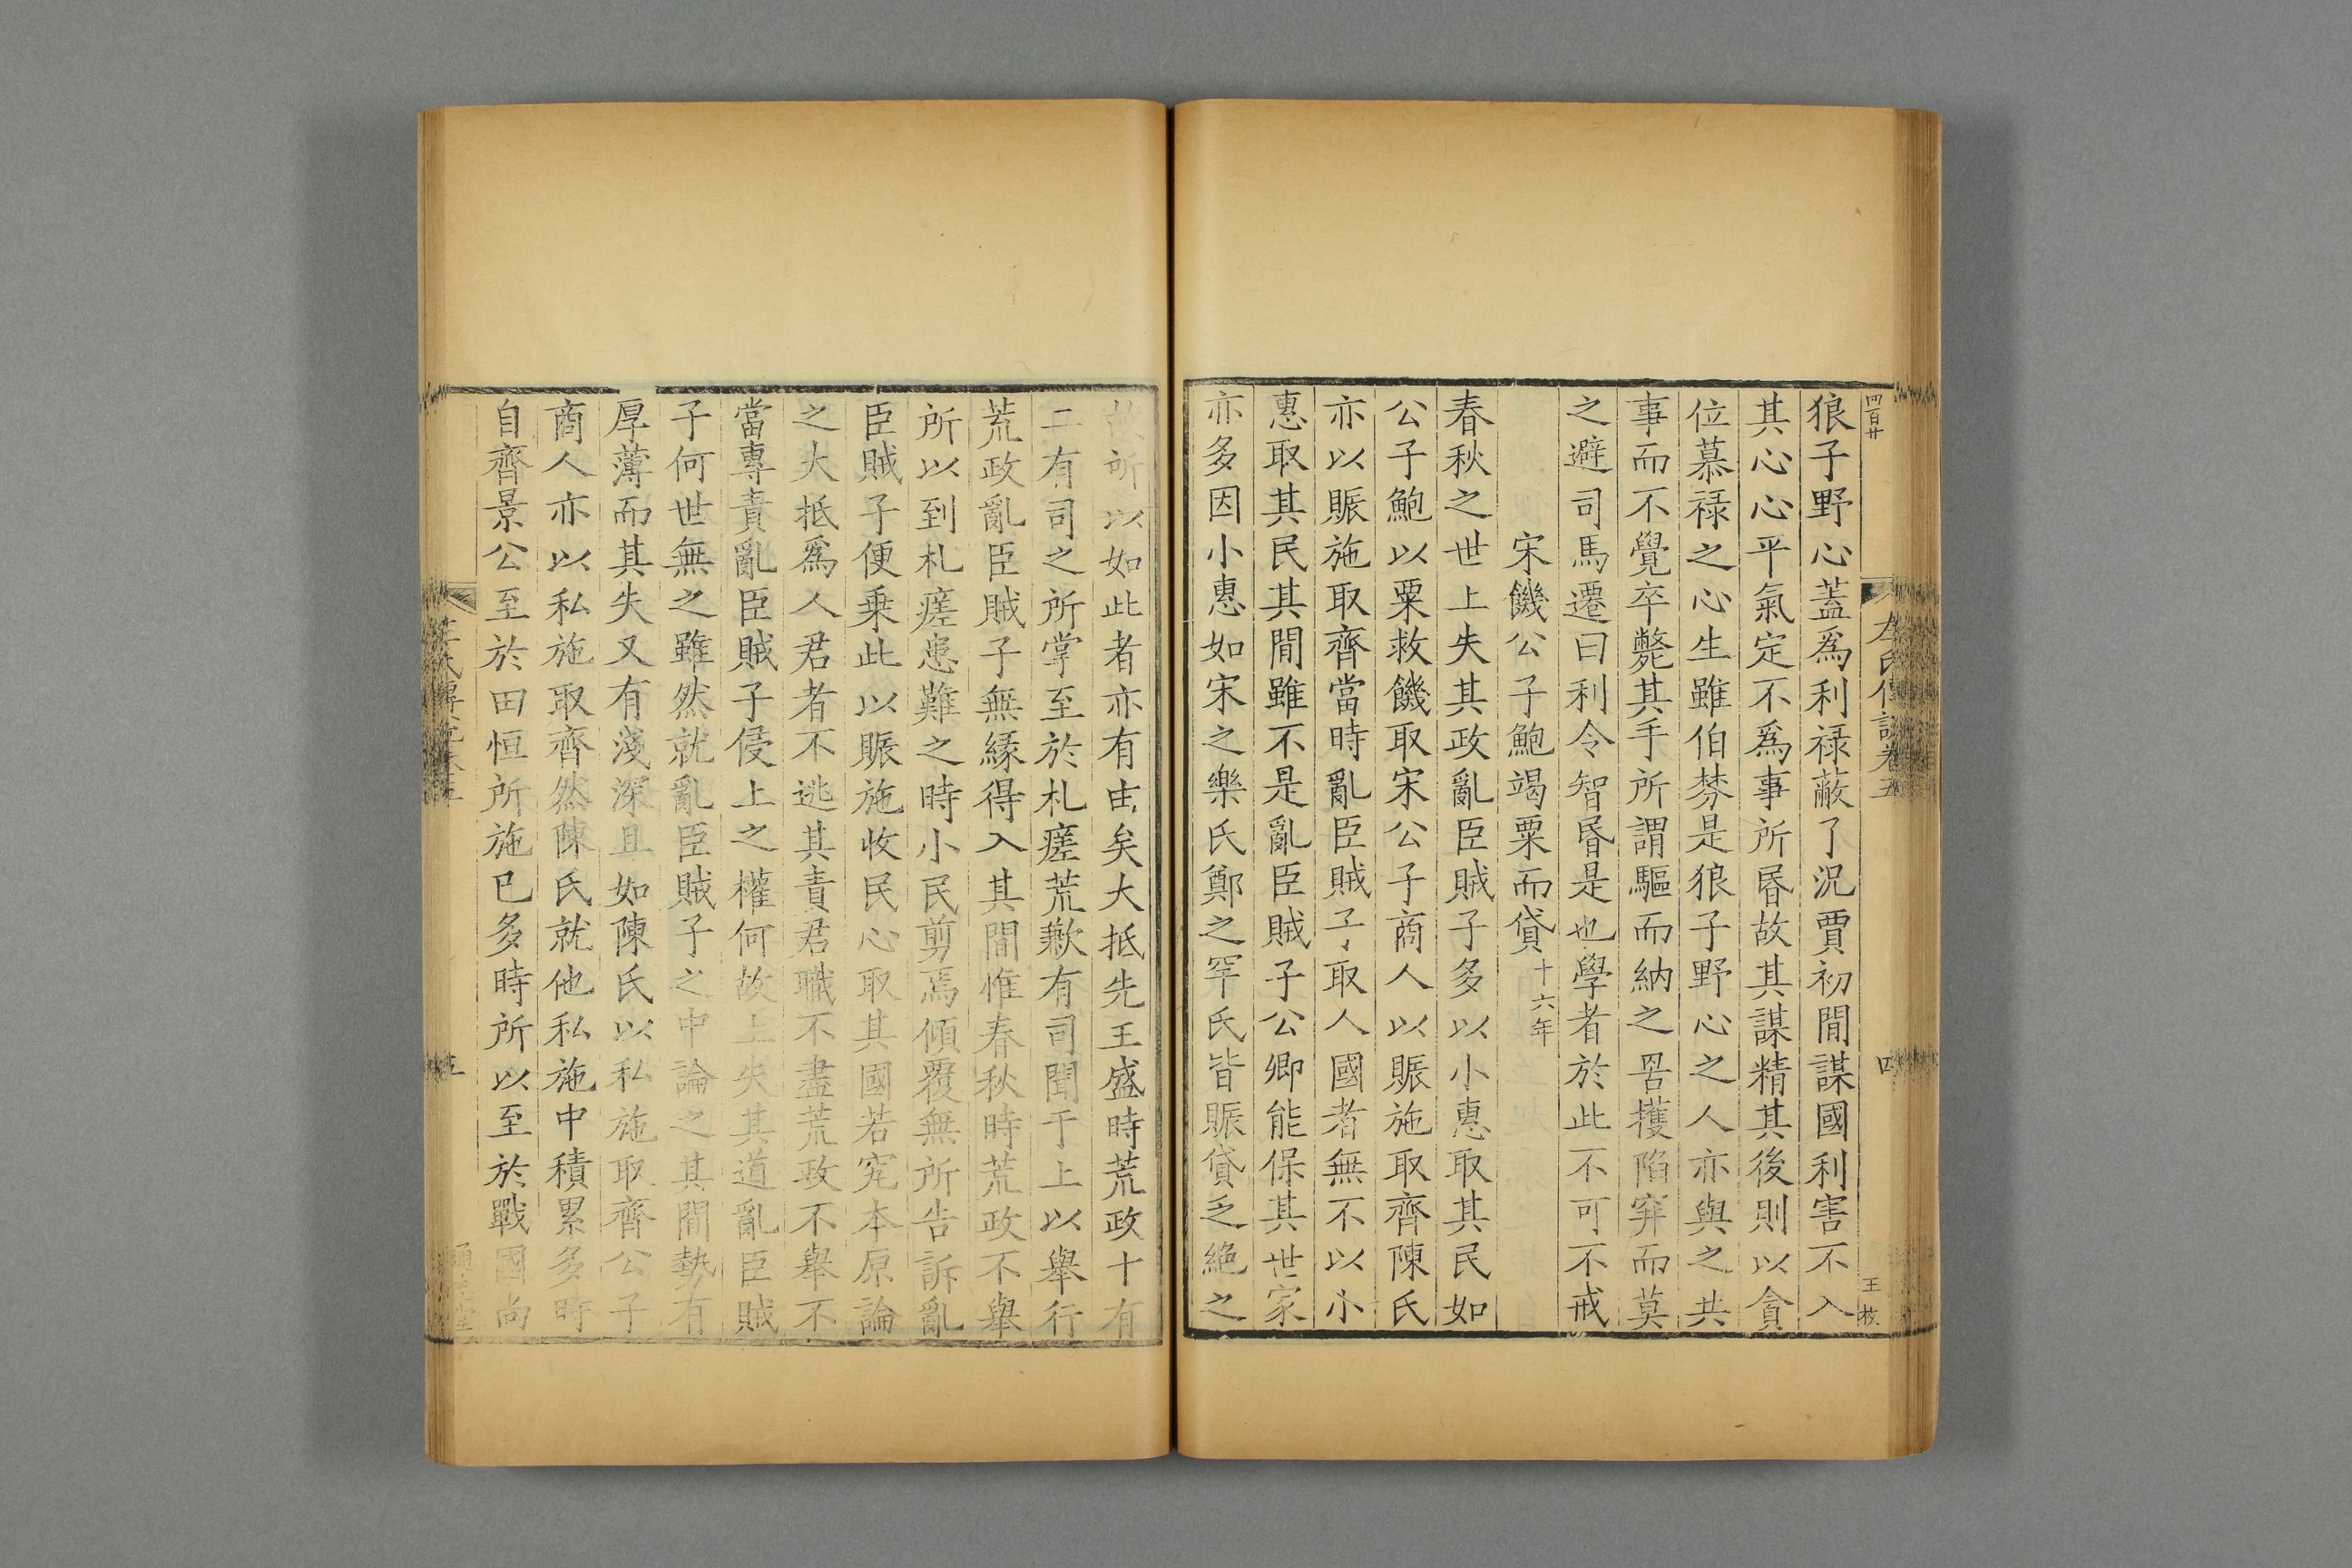 四百廿
左氏傳說卷五
四
王枚
狼子野心蓋爲利祿蔽了況賈初間謀國利害不入
其心心平氣定不爲事所昬故其謀精其後則以貪
位慕祿之心生雖伯棼是狼子野心之人亦與之共
事而不覺卒斃其手所謂驅而納之罟擭陷穽而莫
之避司馬遷曰利令智昬是也學者於此不可不戒
宋饑公子鮑竭粟而貸十六年
春秋之世上失其政亂臣賊子多以小惠取其民如
公子鮑以粟救饑取宋公子商人以賑施取齊陳氏
亦以賑施取齊當時亂臣賊子取人國者無不以小
惠取其民其間雖不是亂臣賊子公卿能保其世家
亦多因小惠如宋之樂氏鄭之罕氏皆賑貸乏絕之
故所以如此者亦有由矣大抵先王盛時荒政十有
二有司之所掌至於札瘥荒歉有司聞于上以舉行
荒政亂臣賊子無緣得入其間惟春秋時荒政不舉
所以到札瘥患難之時小民剪焉傾覆無所告訴亂
臣賊子便乗此以賑施收民心取其國若究本原論
之大抵爲人君者不逃其責君職不盡荒政不舉不
當專責亂臣賊子侵上之權何故上失其道亂臣賊
子何世無之雖然就亂臣賊子之中論之其間勢有
厚薄而其失又有淺深且如陳氏以私施取齊公子
商人亦以私施取齊然陳氏就他私施中積累多時
自齊景公至於田恒所施已多時所以至於戰國尚
左氏傳說卷五
五
通志堂